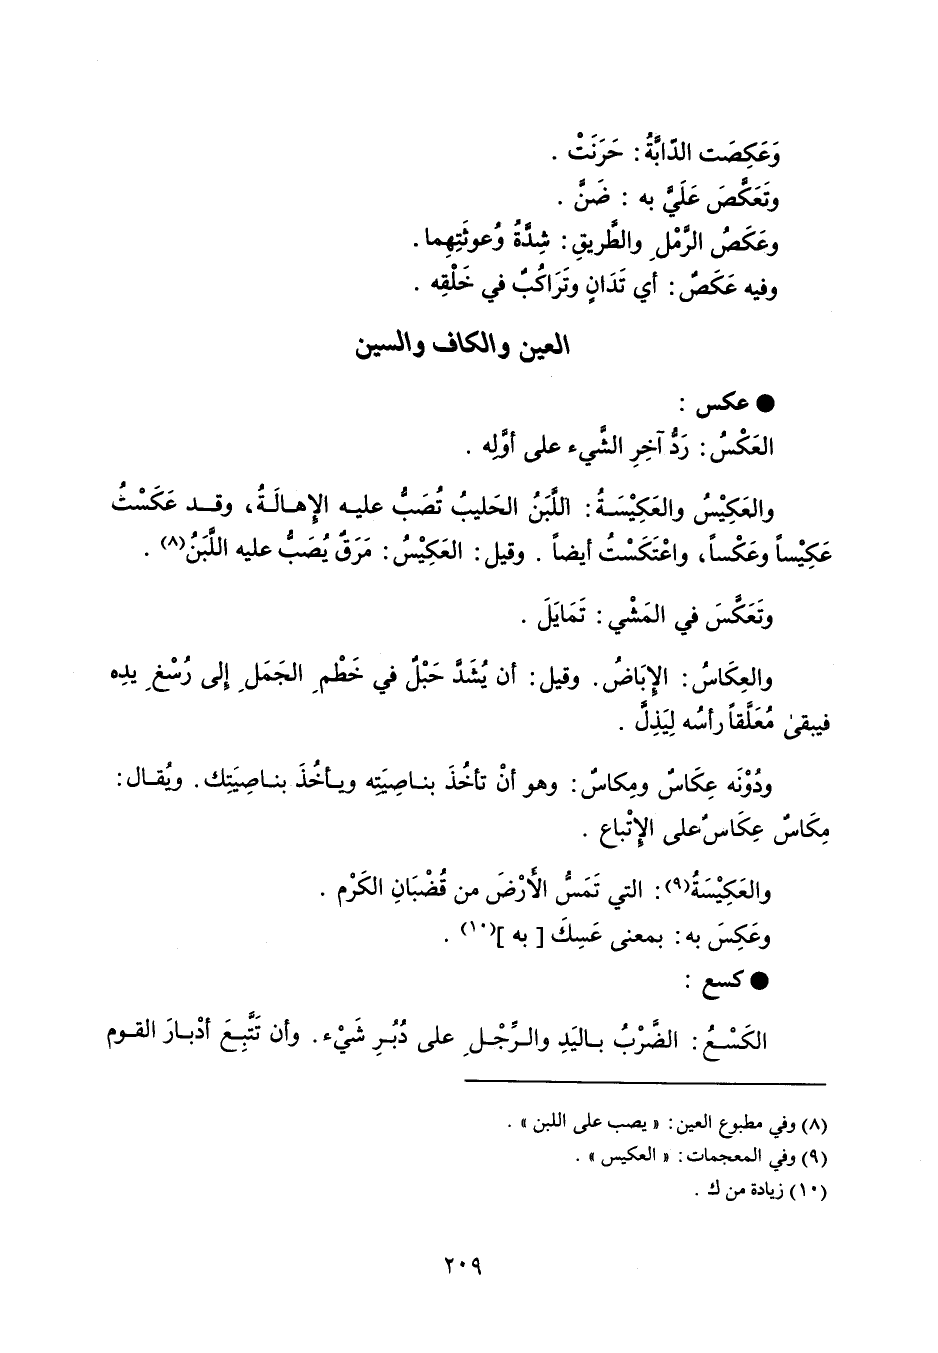 وَعَكِصَت الدّابَّةُ : حَرَنَتْ .
وتَعَكَّصَ عَلَيَّ به : ضَنَّ .
وعَكَصُ الرَّمْلِ والطَّريقِ : شِدَّةُ وُعوثَتِهِما .
وفيه عَكَصٌ : أي تَدَانٍ وتَرَاكُبٌ في خَلْقِه .
العين والكاف والسين
● عكس :
العَكْسُ : رَدُّ آخِرِ الشَّيء على أوَّلِه .
والعَكِيْسُ والعَكِيْسَةُ : اللَّبَنُ الحَليبُ تُصَبُّ عليه الإِهالَةُ ، وقد عَكَسْتُ
عَكِيْساً وعَكْساً ، واعْتَكَسْتُ أيضاً . وقيل : العَكِيْسُ : مَرَقٌ يُصَبُّ عليه اللَّبَنُ(٨) .
وتَعَكَّسَ في المَشْي : تَمَايَلَ .
والعِكَاسُ : الإِبَاضُ . وقيل : أن يُشَدَّ حَبْلٌ في خَطْمِ الجَمَلِ إلى رُسْغِ يدِه
فيبقىٰ مُعَلَّقاً رأسُه لِيَذِلَّ .
ودُوْنَه عِكَاسٌ ومِكاسٌ : وهو أنْ تأخُذَ بناصِيَتِه ويأخُذَ بناصِيَتِك . ويُقال :
مِكَاسٌ عِكَاسٌ على الإِتْباع .
والعَكِيْسَةُ(٩) : التي تَمَسُّ الأَرْضَ من قُضْبَانِ الكَرْم .
وعَكِسَ به : بمعنى عَسِكَ [ به ](١٠) .
● كسع :
الكَسْعُ : الضَّرْبُ باليَدِ والرِّجْلِ على دُبُرِ شَيْء . وأن تَتَّبِعَ أدْبارَ القوم
(٨) وفي مطبوع العين : « يصب على اللبن » .
(٩) وفي المعجمات : « العكيس » .
(١٠) زيادة من ك .
٢٠٩